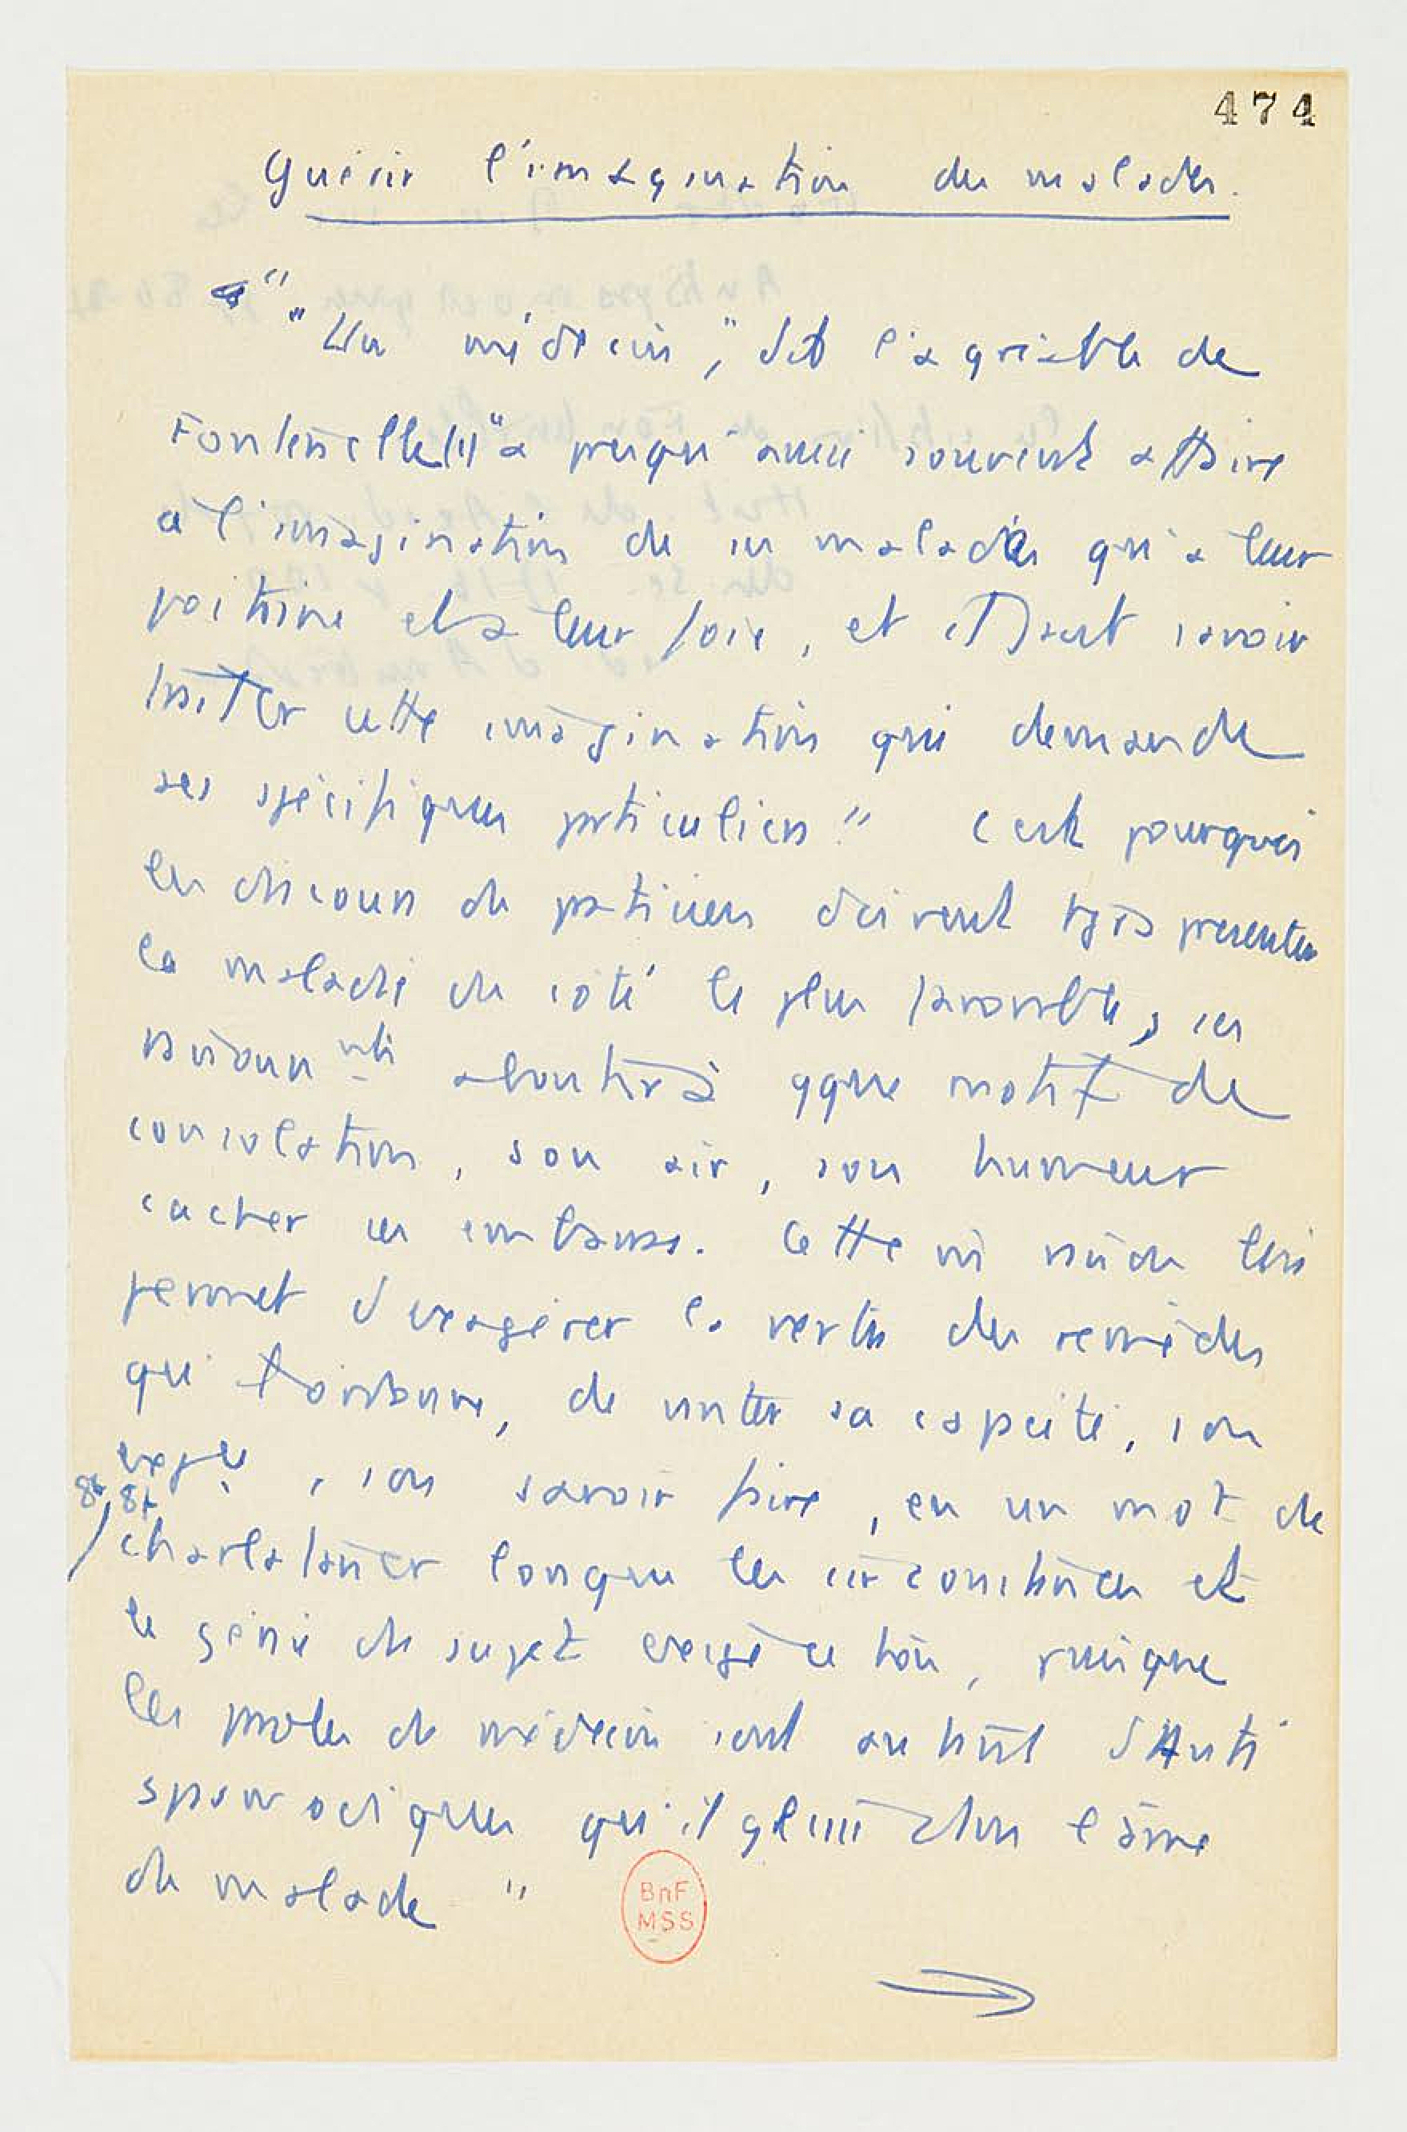 474
Guérir l'imagination des malades.
" "Un médecin", dit l'agréable de
Fontenelle(1) "a presqu'aussi souvent affaire
a l'imagination de ses malades qu'a leur
poitrine et a leur foie, et il faut savoir
traiter cette imagination qui demande
des spécifiques particuliers" C'est pourquoi
les discours du praticien doivent tjrs presenter
la maladie du coté le plus favorable, ses
aboutir à qque motif de
consolation, son air, son humeur
cacher ses embarras. Cette lui
permet d'exagérer la vertu des remèdes
qu'il, de vanter sa capacité, son
expce, son savoir faire, en un mot de
86/87
charlataner lorsque les circonstances et
le génie du sujet exige ce ton, puisque
les paroles du médecin sont autant d'Anti
spasmodiques qu'il glisse dans l'âme
du malade "
BnF
MSS